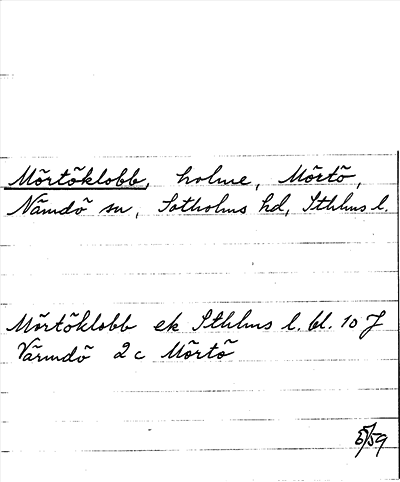 Mörtöklobb, holme, Mörtö,
Nämdö sn, Sotholms hd, Sthlms l.
Mörtöklobb ek Sthlms l. bl. 10 J
Värmdö 2c Mörtö
5/59